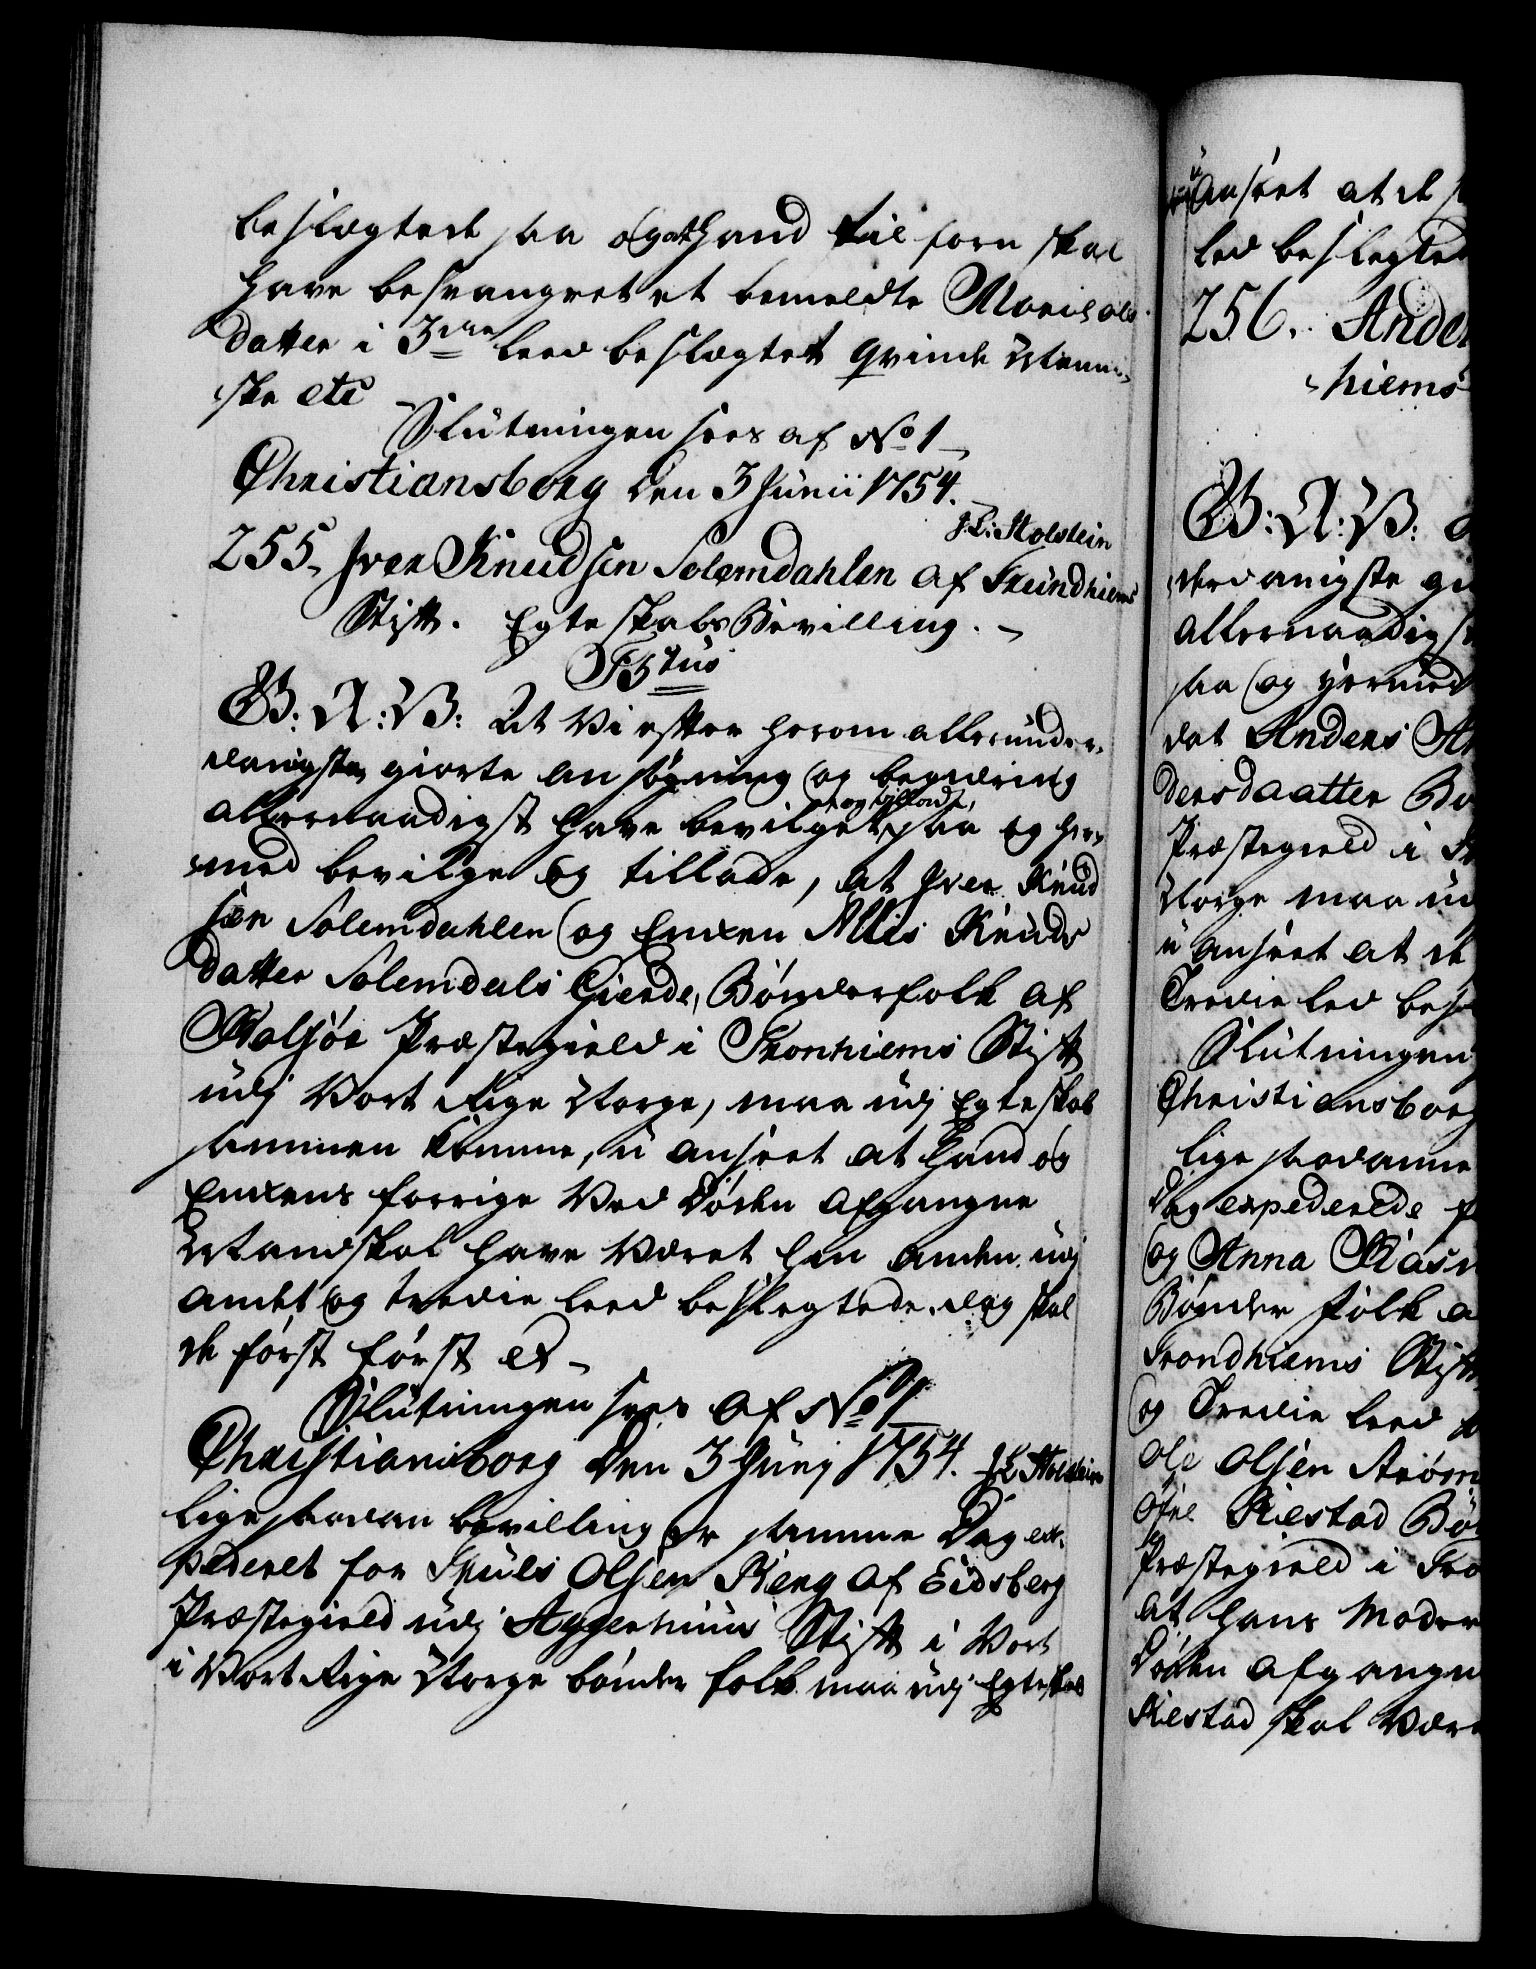 beslægtede saa og at Hand til forn skal
have besvangret et bemeldte Marich Ols
datter i 3die leed beslægtet Qvinde Menni-
ske etc
Slutningen sees af No 1
Christiansborg den 3 Junii 1754.
J. L: Holstein
255. Iver Knudsen Solemdahlen af Trundhiems
Stift. Egteskabs Bevilling.
F5tus
G: A: V: At Vi efter herom allerunder-
danigste giorte ansøgning og begiæring
allernaadigst have bevilget og tilladt, saa og her-
med bevilge og tillade, at Iver Knud
sen Solemdahlen og Enken Allis Knuds
datter Solemdals Gierde, Bønderfolk af
Bolsøe Præstegield i Tronhiems Stift
udj Vort Rige Norge, maa udj Egteskab
sammen komme, u anseet at Hand og
Enkens forrige Ved Døden afgangne
Mand skal have Været hin anden udj
andet og tredie leed beslegtede. dog skal
de først først etc
Slutningen sees af No 1
Christiansborg den 3 Junij 1754. J L Holstein
lige saadan bevilling er samme Dag ex-
pederet for Truls Olsen Berg af Eidsberg
Præstegield udj Aggerhuus Stift i Vort
i Vort Rige Norge bønder folk maa udj Egteskab
u anseet at de
led beslegted
256. Ander
hiems
G: A: V:
derdanigste gi
allernaadigst
saa og hermed
dat Anders An
dersdaatter
Præstegield i
Norge maa ud
u anseet at de
Tredie led bes
Slutningen
Christiansborg
lige saadanne
Dag expederede
og Anna
Bønder folk a
Trondhiems Stift
og Tredie leed
Ole Olsen
Kiestad Bø
Præstegield i Tro
at hans Moder
Døden afgangn
Kiestad skal Være